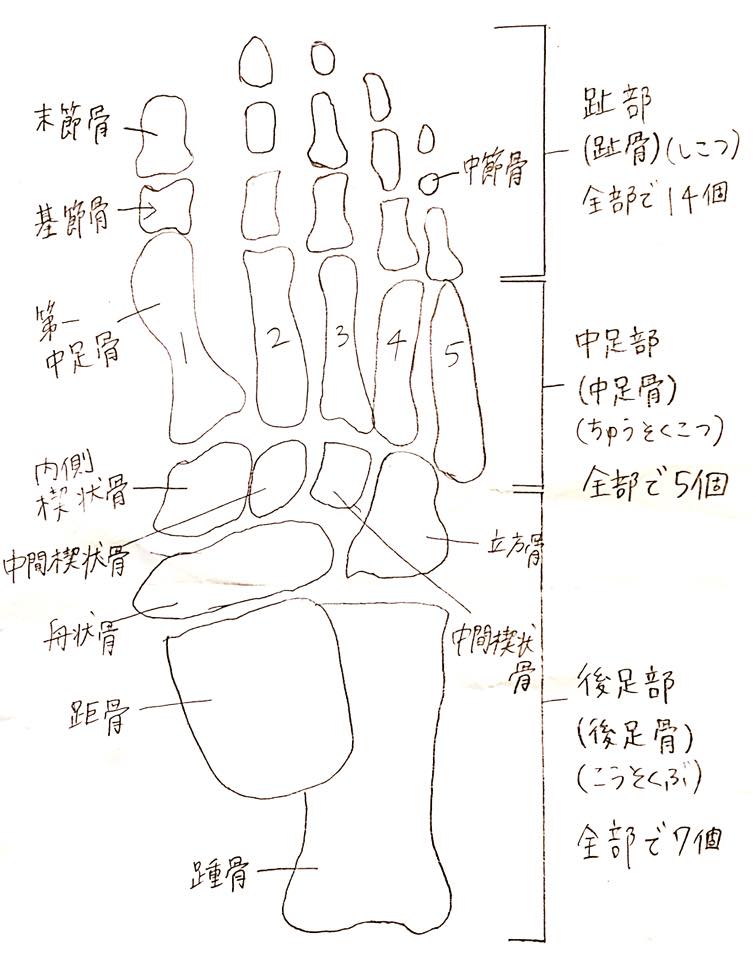 末節骨
基節骨
第一
中足骨
内側
楔状骨
中間楔状骨
舟状骨
距骨
踵骨
1
2
3
4
5
中節骨
立方骨
中間楔状
骨
趾部
(趾骨)(しこつ)
全部で14個
中足部
(中足骨)
(ちゅうそくこつ)
全部で5個
後足部
(後足骨)
(こうそくぶ)
全部で7個